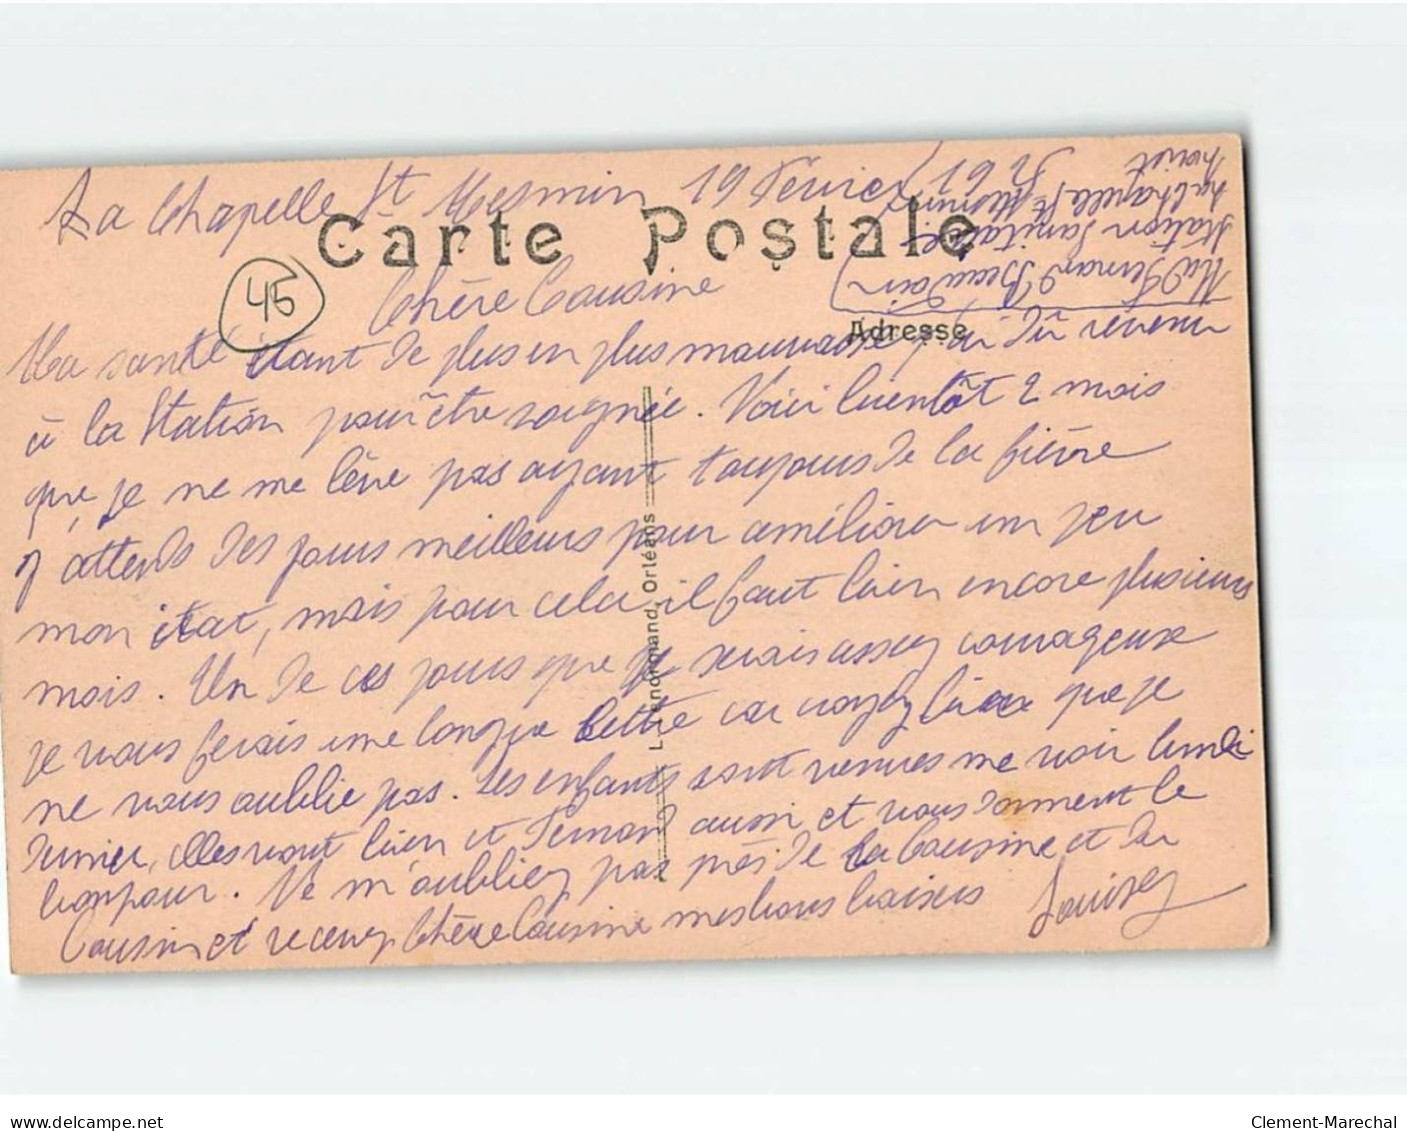 La Chapelle St Mesmin 19 Février 1926
Carte Postale
Mad Fernand Beaudoin
Station Sanitaire
La Chapelle St Mesmin
Loiret
Adresse
45
Chère Cousine
Ma santé étant de plus en plus mauvaise j'ai dû revenir
à la Station pour être soignée. Voici bientôt 2 mois
que je ne me lève pas ayant toujours de la fièvre
J'attends des jours meilleurs pour améliorer un peu
mon état, mais pour cela il faut bien encore plusieurs
mois. Un de ces jours que je serais assez courageuse
je vous ferais une longue lettre car croyez bien que je
ne vous oublie pas. Les enfants sont venues me voir lundi
dernier, elles vont bien et Fernand aussi et vous donnent le
bonjour. Ne m'oubliez pas près de la Cousine et du
Cousin et recevez Chère Cousine mes bons baisers Louise
L. Lenormand, Orléans
delcampe.net
Clement-Marechal